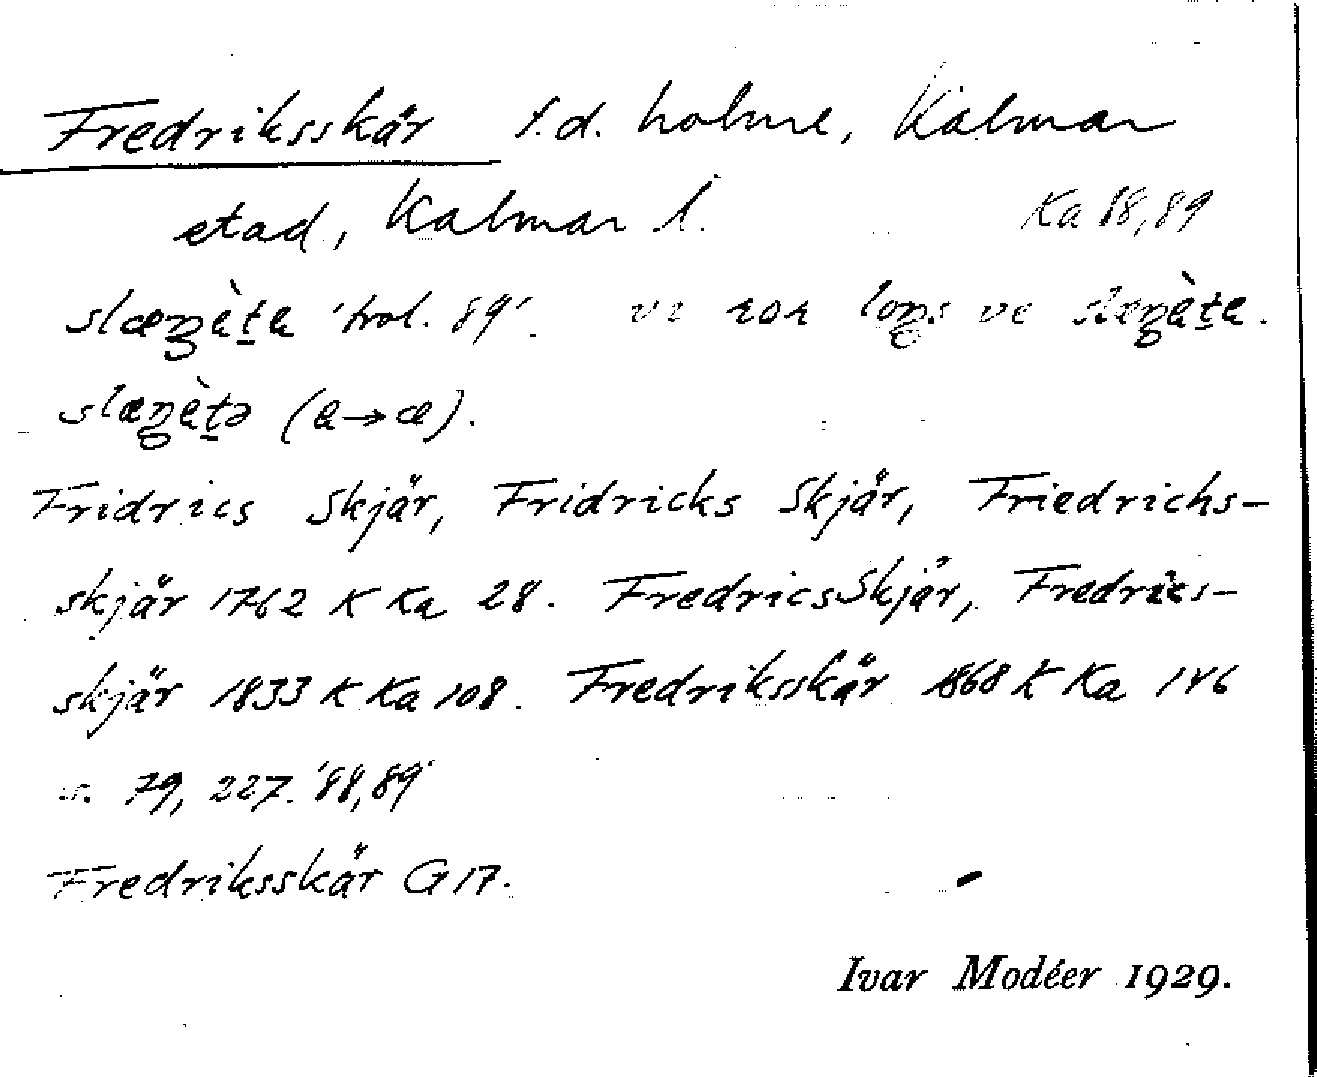 Fredriksskär f.d. holme, Kalmar
stad, Kalmar l. Ka 88,89
'trol. 89'.
(a→æ).
Fridrics Skjär, Fridricks Skjär, Friedrichs-
skjär 1762 K Ka 28. FredricsSkjär, Fredrics-
skjär 1833 K Ka 108. Fredriksskär 1868 K Ka 146
s. 79, 227. '88,89'
Fredriksskär G 17.
Ivar Modéer 1929.